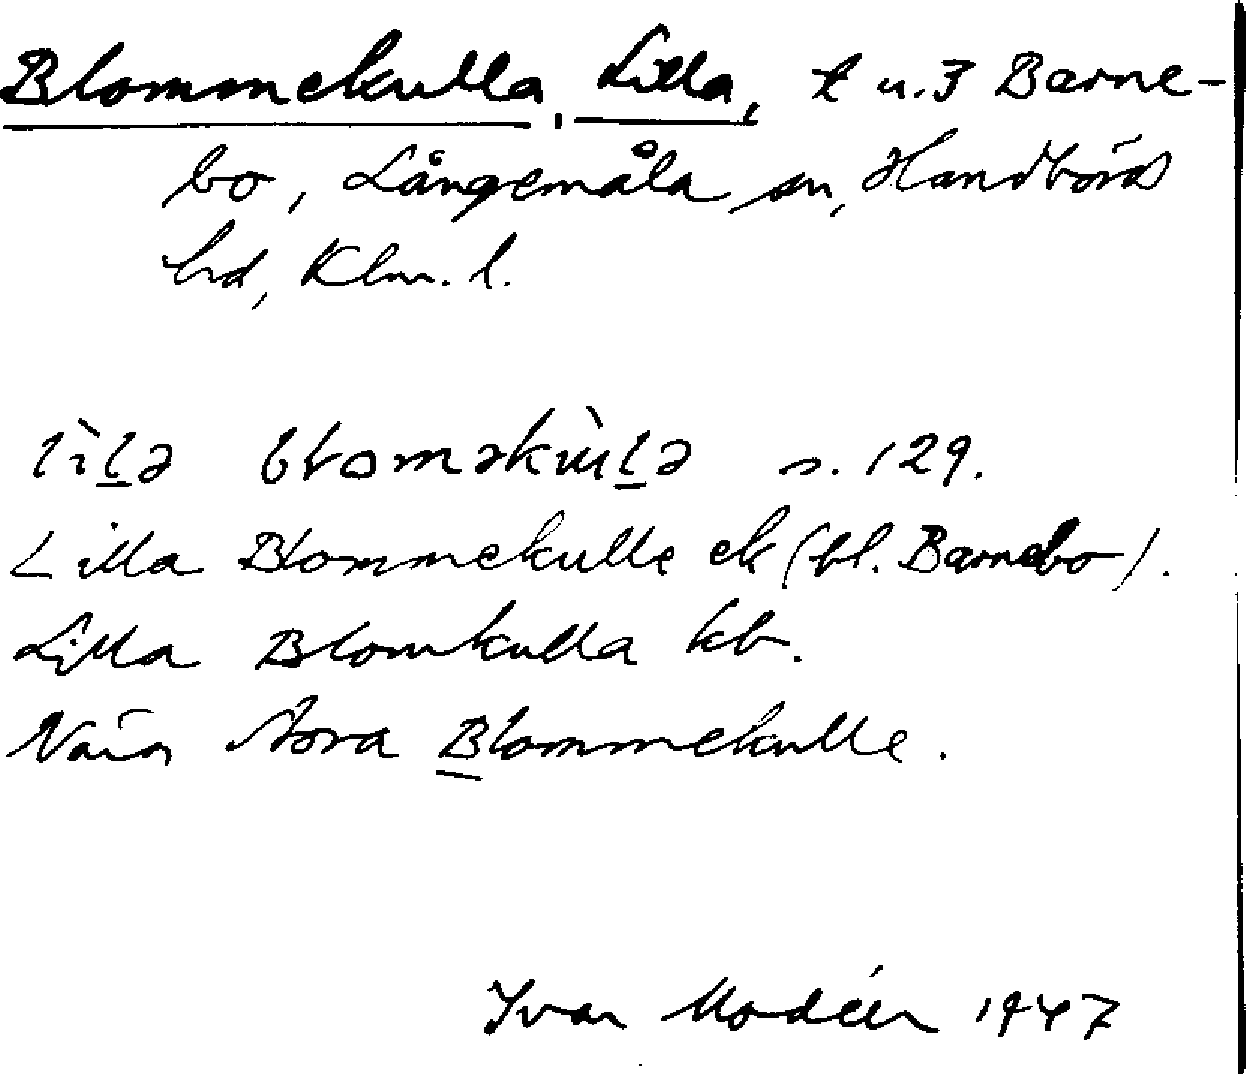 Blommekulla, Lilla, t u. 3 Barne-
bo, Långemåla sn, Handbörds
hd, Klm. l.
lìlə blomakùlə s. 129.
Lilla Blommekulle ek (bl. Barnebo).
Lilla Blomkulla kb.
Nära Stora Blommekulle.
Yvar Modéer 1947